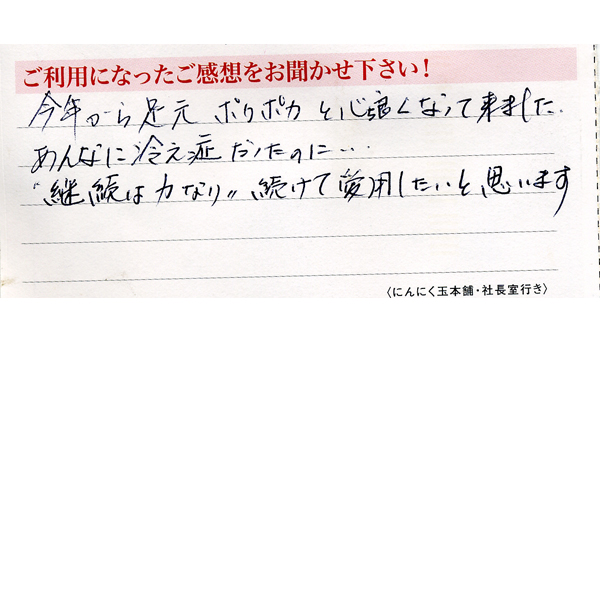 ご利用になったご感想をお聞かせ下さい！
今年から足元 ポカポカ と心強くなって来ました.
あんなに冷え症だったのに…
“継続は力なり〟続けて愛用したいと思います
〈にんにく玉本舗・社長室行き〉